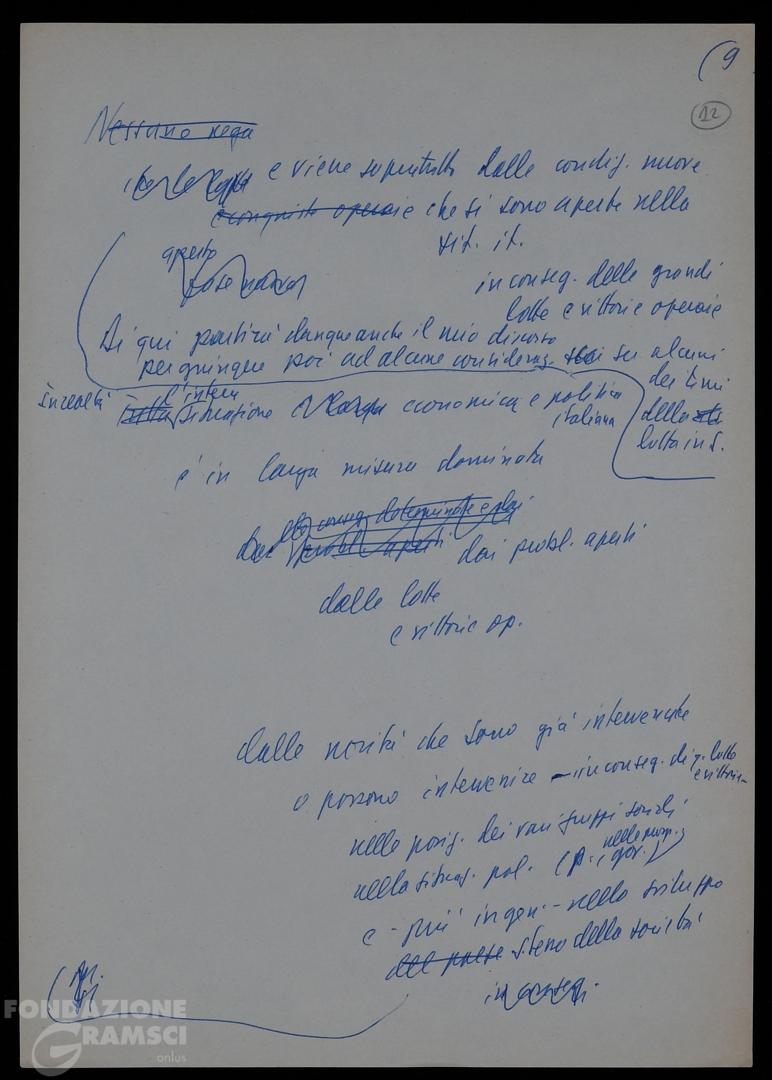 (9
12
Nessuno nega
e viene soprattutto dalle condiz. nuove
e conquiste operaie che si sono aperte nella
sit. it.
aperto
fase nuova
in conseg. delle grandi
lotte e vittorie operaie
Di qui partirà dunque anche il mio discorso
per giungere poi ad alcune consideraz. su alcuni
dei temi
della
lotta in S.
In realtà
l'intera
situazione economica e politica
italiana
è in larga misura dominata
dai probl. aperti
dalle lotte
e vittorie op.
dalle novità che sono già intervenute
o possono intervenire - in conseg. di q. lotte
e vittorie -
nelle posiz. dei vari gruppi sociali
nella situaz. pol. (p., gov.)
e - più in gen. - nello sviluppo
del paese stesso della società
FONDAZIONE
GRAMSCI
onlus